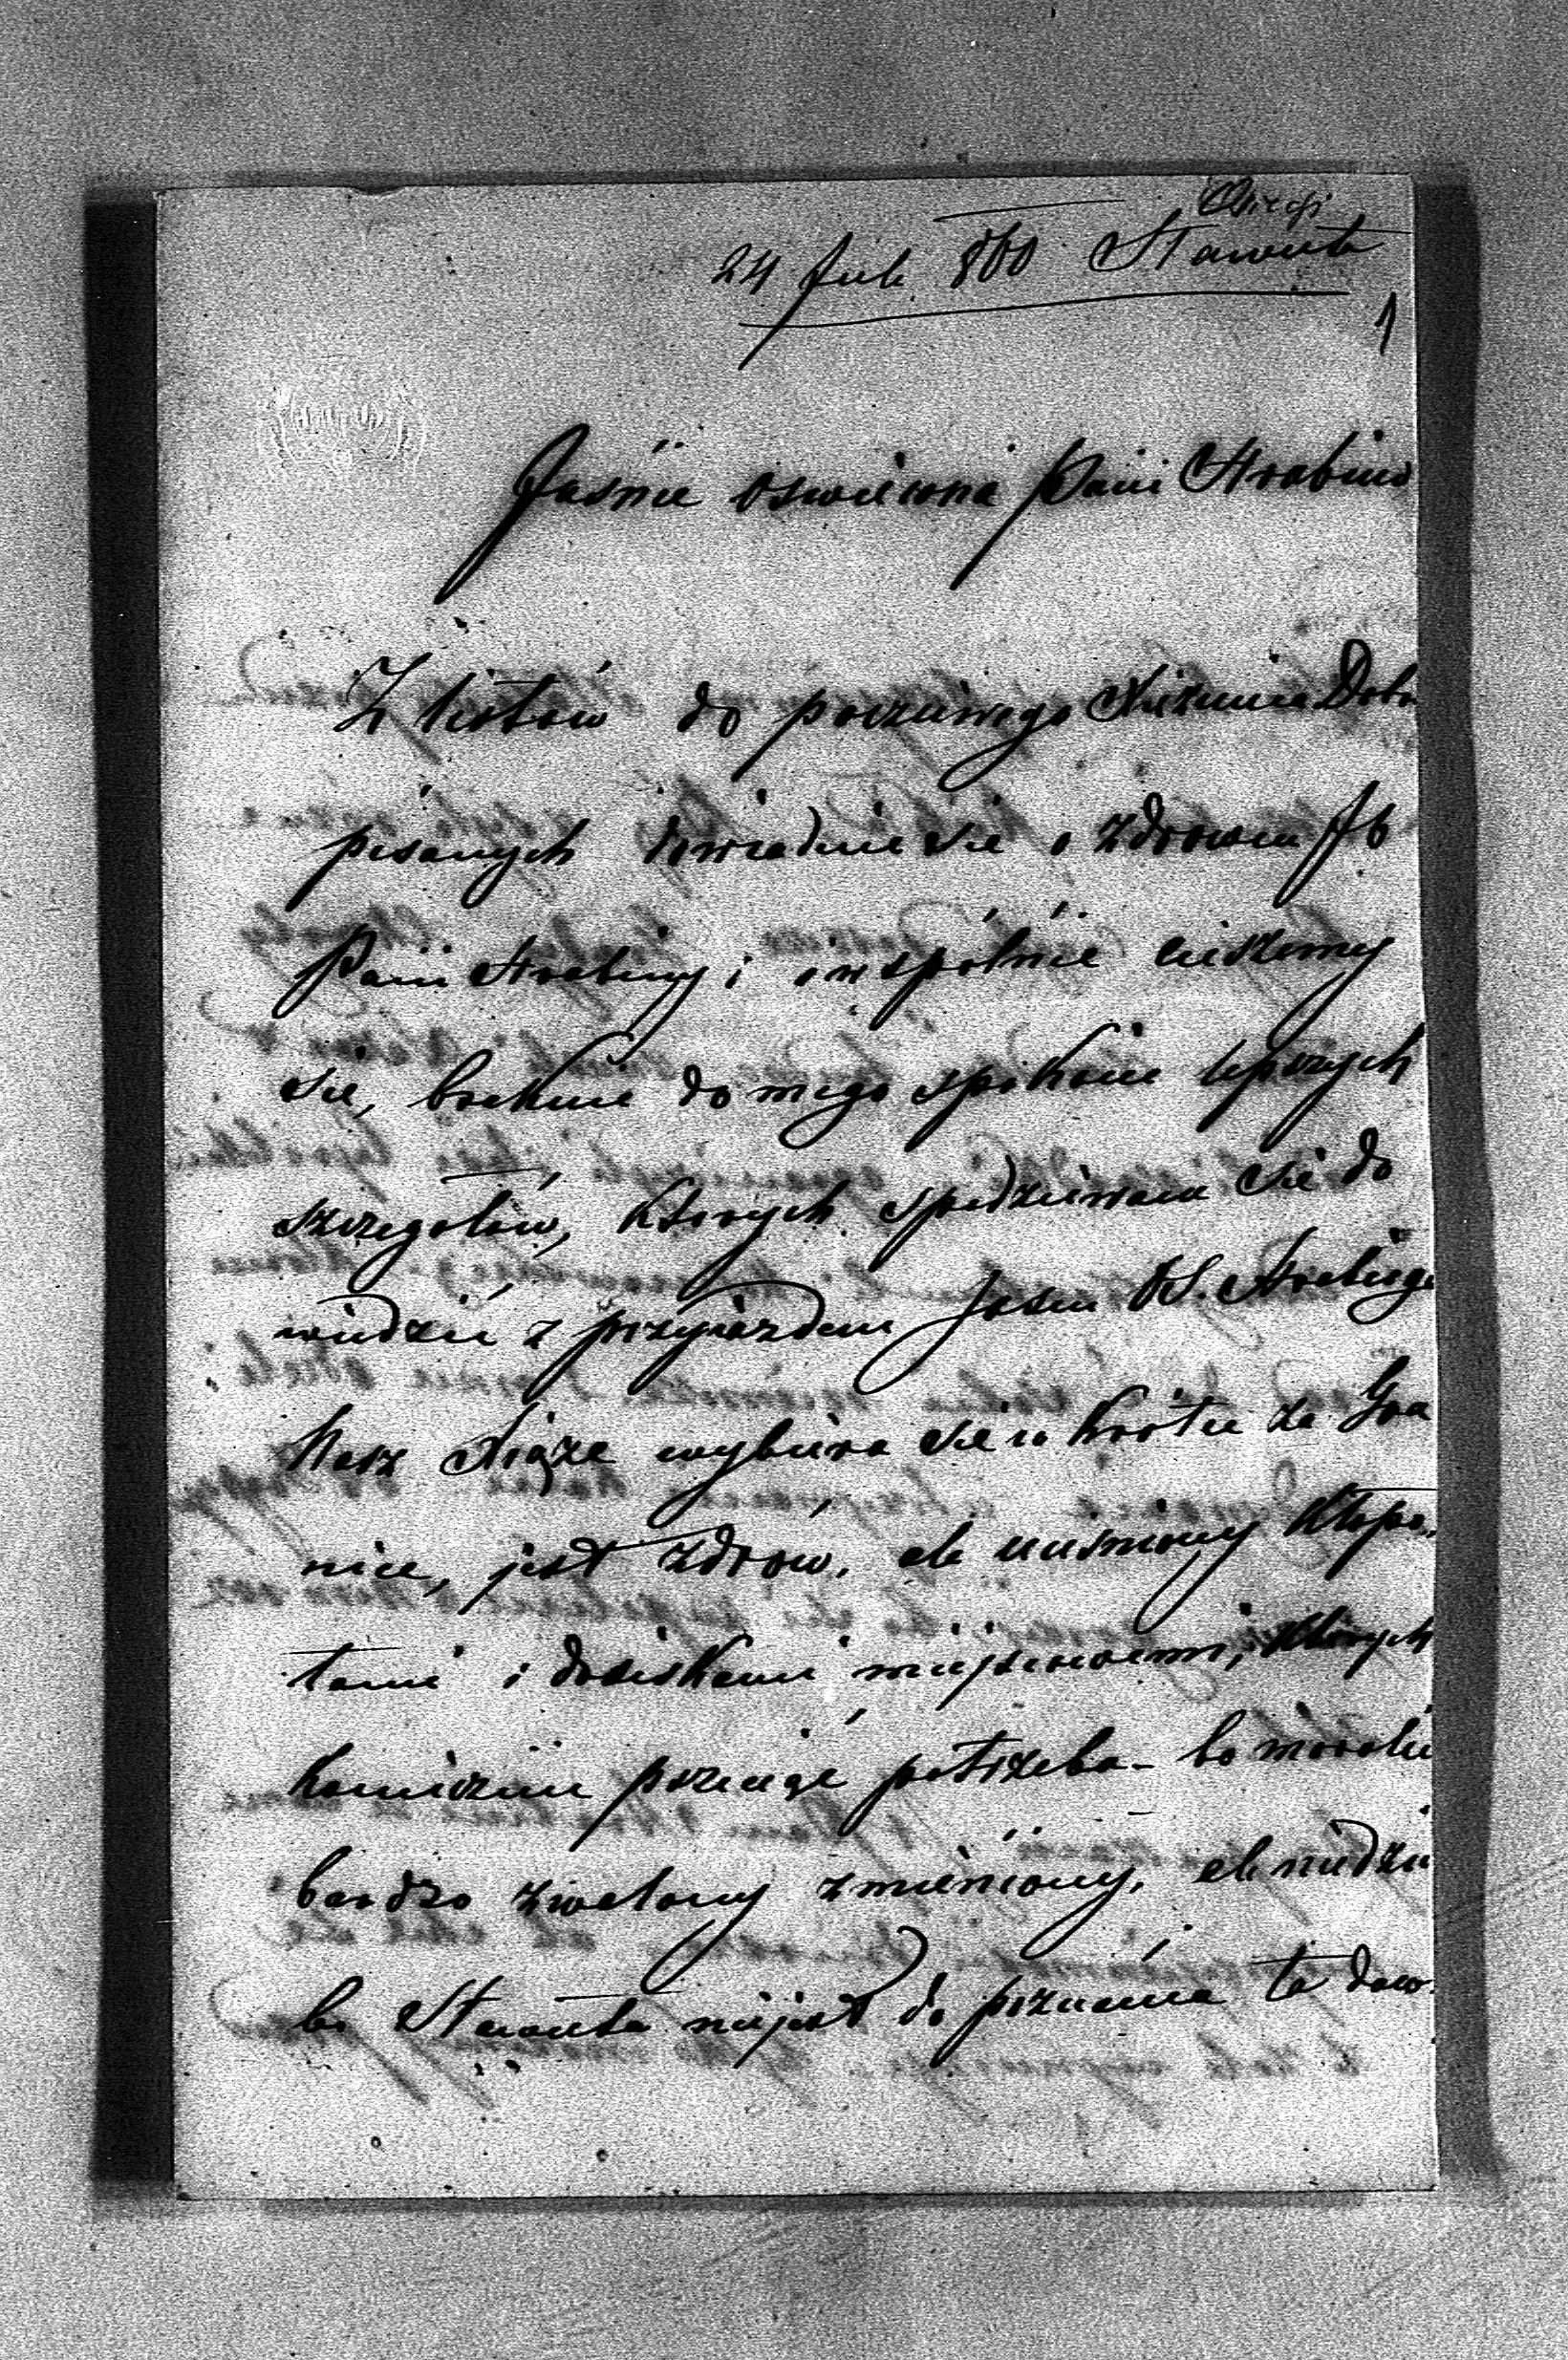 24 Jul. 860 Sławuta
1
Jaśnie oswiecona Pani Hrabino
Z listów do poczciwego Xiezunia Dobr
pisanych dowiaduie sie o zdrowiu JO
Pani Hrabiny; i wspólnie cieszemy
sie, brakuie do mego spokoiu lepszych
szczegołów, których spodziewam sie do
wiedzić z przyjazdem Jasnie OS. Hrabiego
Nasz Xiąże wybiera sie w krótce za Gra
nice, jest zdrów, ale ucisniony kłopo„
tami i dosiskami miejscowemi, których
koniecznie przeciąć potrzeba - bo moralnie
bardzo zwolony zmieniony, ale niedziw
bo Sławuta niejest do poznania ta daw